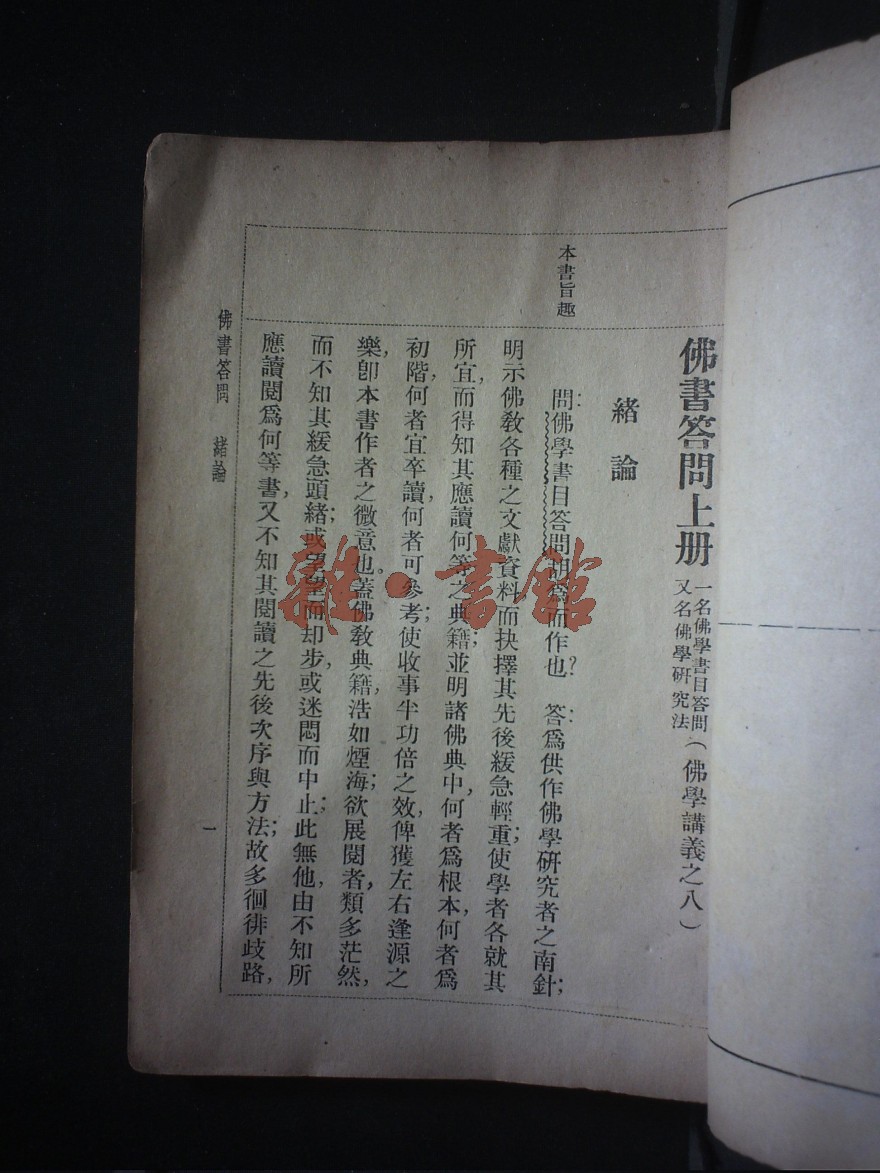 佛書答問上册 一名佛學書目答問 又名佛學研究法 (佛學講義之八)
緒論
本書旨趣
問:佛學書目答問胡爲而作也? 答:爲供作佛學研究者之南針;
明示佛教各種之文獻資料而抉擇其先後緩急輕重;使學者各就其
所宜,而得知其應讀何等之典籍;並明諸佛典中,何者爲根本,何者爲
初階,何者宜卒讀,何者可參考;使收事半功倍之效,俾獲左右逢源之
樂,卽本書作者之微意也。蓋佛教典籍,浩如煙海;欲展閱者,類多茫然,
而不知其緩急頭緒;或望望而却步,或迷悶而中止;此無他,由不知所
應讀閱爲何等書,又不知其閱讀之先後次序與方法;故多徊徘歧路,
佛書答問 緒論
一
雜·書館